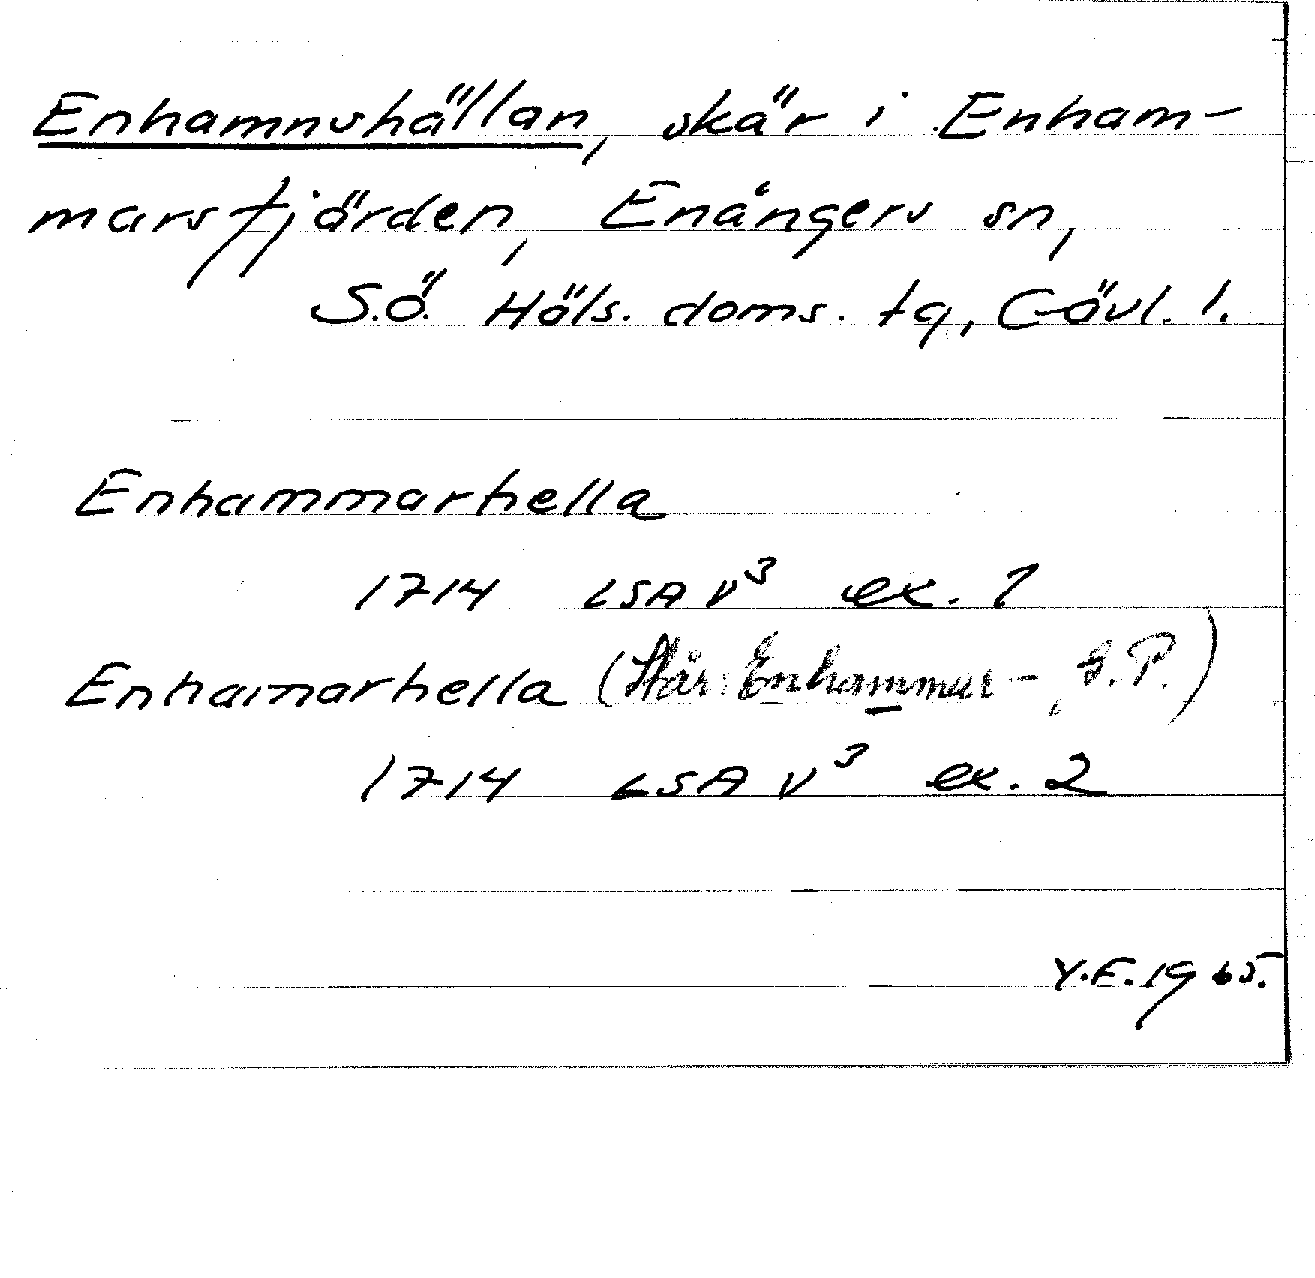 Enhamnshällan, skär i Enham-
marsfjärden, Enångers sn,
S.ö. Häls. doms. tg, Gävl. l.
Enhammarhella
1714 LSA V³ ex. 1
Enhamarhella (Står: Enhammur-, G.P.)
1714 LSA V³ ex. 2
Y.E. 1965.